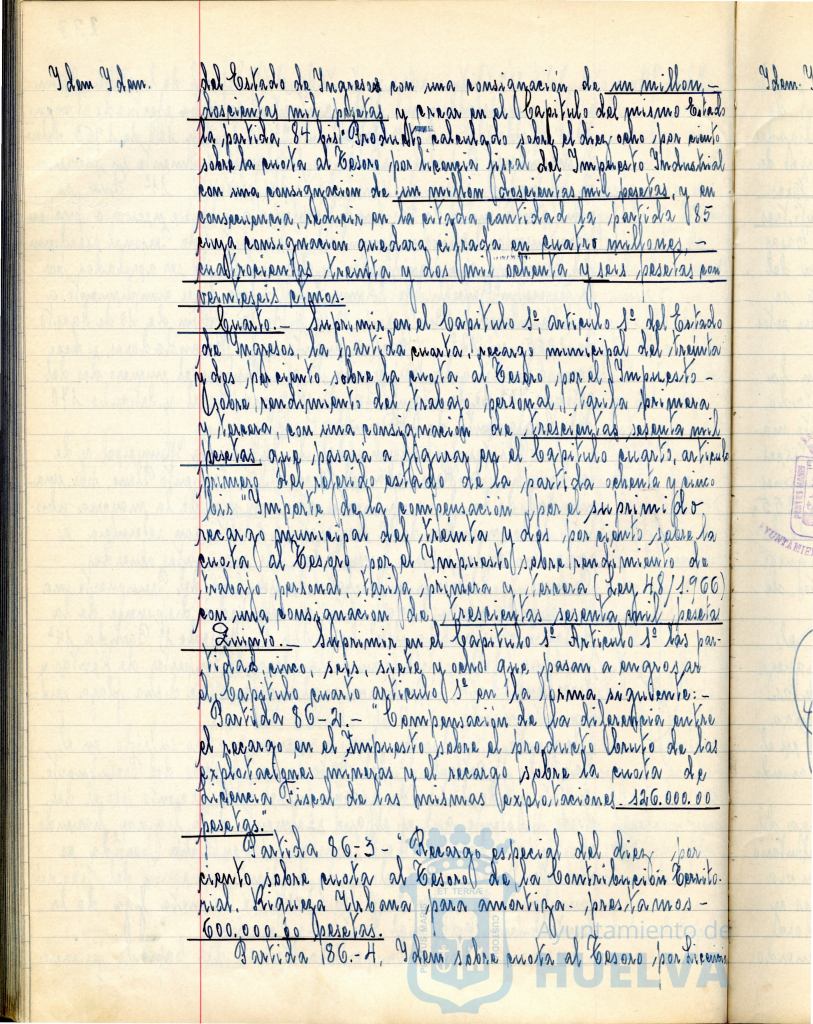 Idem Idem.
del Estado de Ingresos con una consignación de un millon,-
doscientas mil pesetas y crear en el Capitulo del mismo Estado
la partida 84 bis "Producto calculado sobre el diez ocho por ciento
sobre la cuota al Tesoro por licencia fiscal del Impuesto Industrial
con una consignacion de un millón doscientas mil pesetas, y en
consecuencia, reducir en la citada cantidad la partida 85
cuya consignacion quedara cifrada en cuatro millones, -
cuatrocientas treinta y dos mil ochenta y seis pesetas con
veinteseis ctmos.
Cuarto.- Suprimir en el Capitulo 1º, articulo 1º del Estado
de Ingresos, la partida cuarta, recargo municipal del treinta
y dos por ciento sobre la cuota al Tesoro por el Impuesto -
sobre rendimiento del trabajo personal, tarifa primera
y tercera, con una consignación de trescientas sesenta mil
pesetas que pasara a figurar en el Capitulo cuarto, articulo
primero del referido estado de la partida ochenta y cinco
bis "Importe de la compensación por el suprimido
recargo municipal del treinta y dos por ciento sobre la
cuota al Tesoro por el Impuesto sobre rendimiento de
trabajo personal, tarifa primera y tercera (Ley 48/1.966)
con una consignación de trescientas sesenta mil peseta
Quinto.- Suprimir en el Capitulo 1º Articulo 1º las par-
tidas cinco, seis, siete y ocho que pasan a engrosar
el Capitulo cuarto articulo 1º en la forma siguiente:-
Partida 86-2.- "Compensación de la diferencia entre
el recargo en el Impuesto sobre el producto bruto de las
explotaciones mineras y el recargo sobre la cuota de
Licencia Fiscal de las mismas explotaciones. 126.000.00
pesetas."
Partida 86.-3- "Recargo especial del diez por
ciento sobre cuota al Tesoro de la Contribución Territo-
rial. Riqueza Urbana, para amortiza- prestamos -
600.000.00 pesetas.
Partida 86.-4, Idem sobre cuota al Tesoro por Licencia
Idem.
Ayuntamiento de
HUELVA